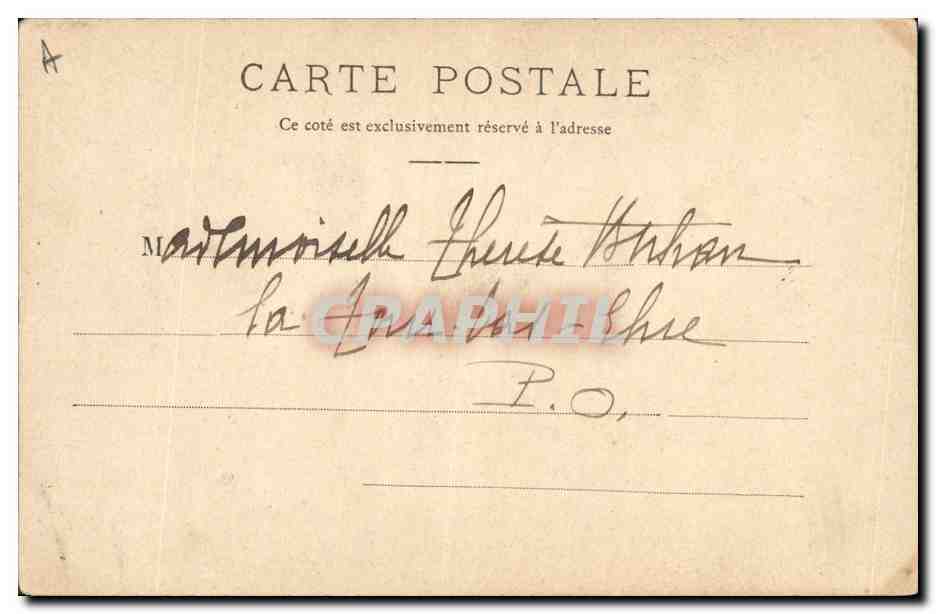 A
CARTE POSTALE
Ce coté est exclusivement réservé à l'adresse
Mademoiselle Therèse
la Tour-bas-Elne
P.O.
CRAPHIL